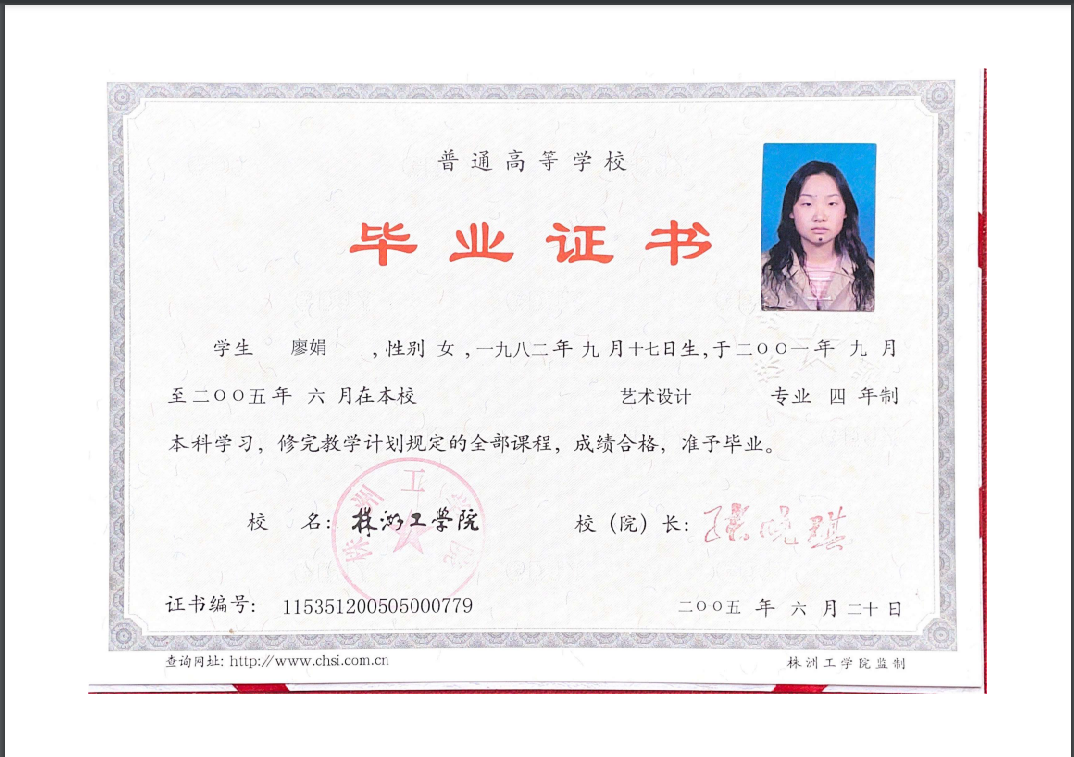 普通高等学校
毕业证书
学生 廖娟 ,性别 女 ,一九八二年 九 月十七日生,于二〇〇一年 九 月
至二〇〇五年 六 月在本校 艺术设计 专业 四 年制
本科学习，修完教学计划规定的全部课程，成绩合格，准予毕业。
校 名: 株洲工学院 校（院）长: 张晓琪
证书编号: 115351200505000779 二〇〇五 年 六 月二十日
查询网址: http://www.chsi.com.cn 株洲工学院监制